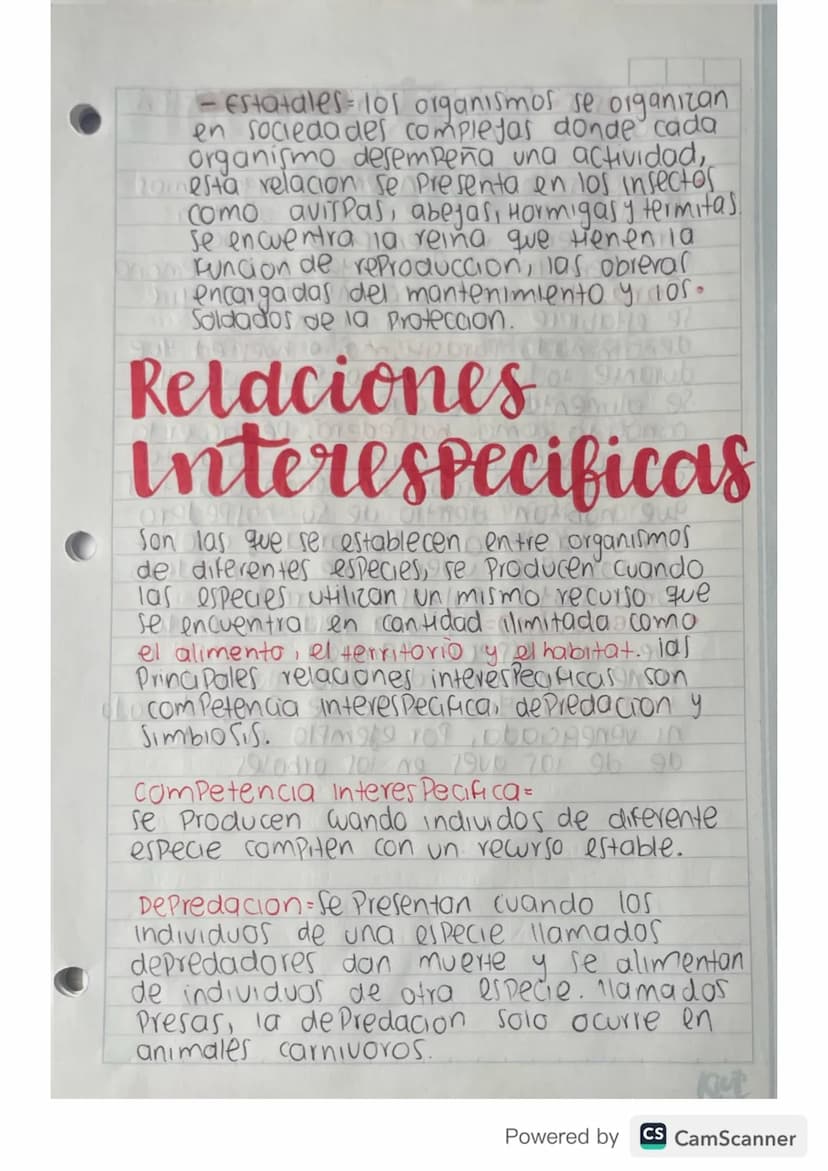 - Estatales= los organismos se organizan
en sociedades complejas donde cada
organismo desempeña una actividad,
esta relacion se presenta en los insectos
como avispas, abejas, Hormigas y termitas
se encuentra la reina que tienen la
funcion de reproduccion, las obreras
encargadas del mantenimiento y los
soldados de la proteccion.
Relaciones
Interespecificas
Son las que se establecen entre organismos
de diferentes especies, se producen cuando
las especies utilizan un mismo recurso que
se encuentra en cantidad ilimitada como
el alimento, el territorio y el habitat. las
Principales relaciones interespecificas son
competencia interespecifica, depredacion y
simbiosis.
competencia interespecifica=
se producen cuando individos de diferente
especie compiten con un recurso estable.
Depredacion= Se presentan cuando los
individuos de una especie llamados
depredadores dan muerte y se alimentan
de individuos de otra especie. llamados
presas, la depredacion solo ocurre en
animales carnivoros.
Powered by CS CamScanner